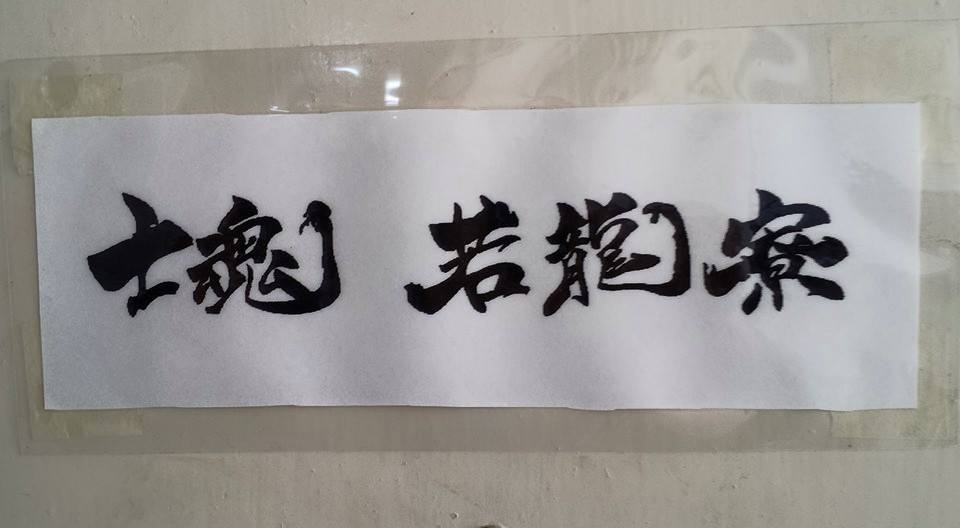 士魂 若龍寮